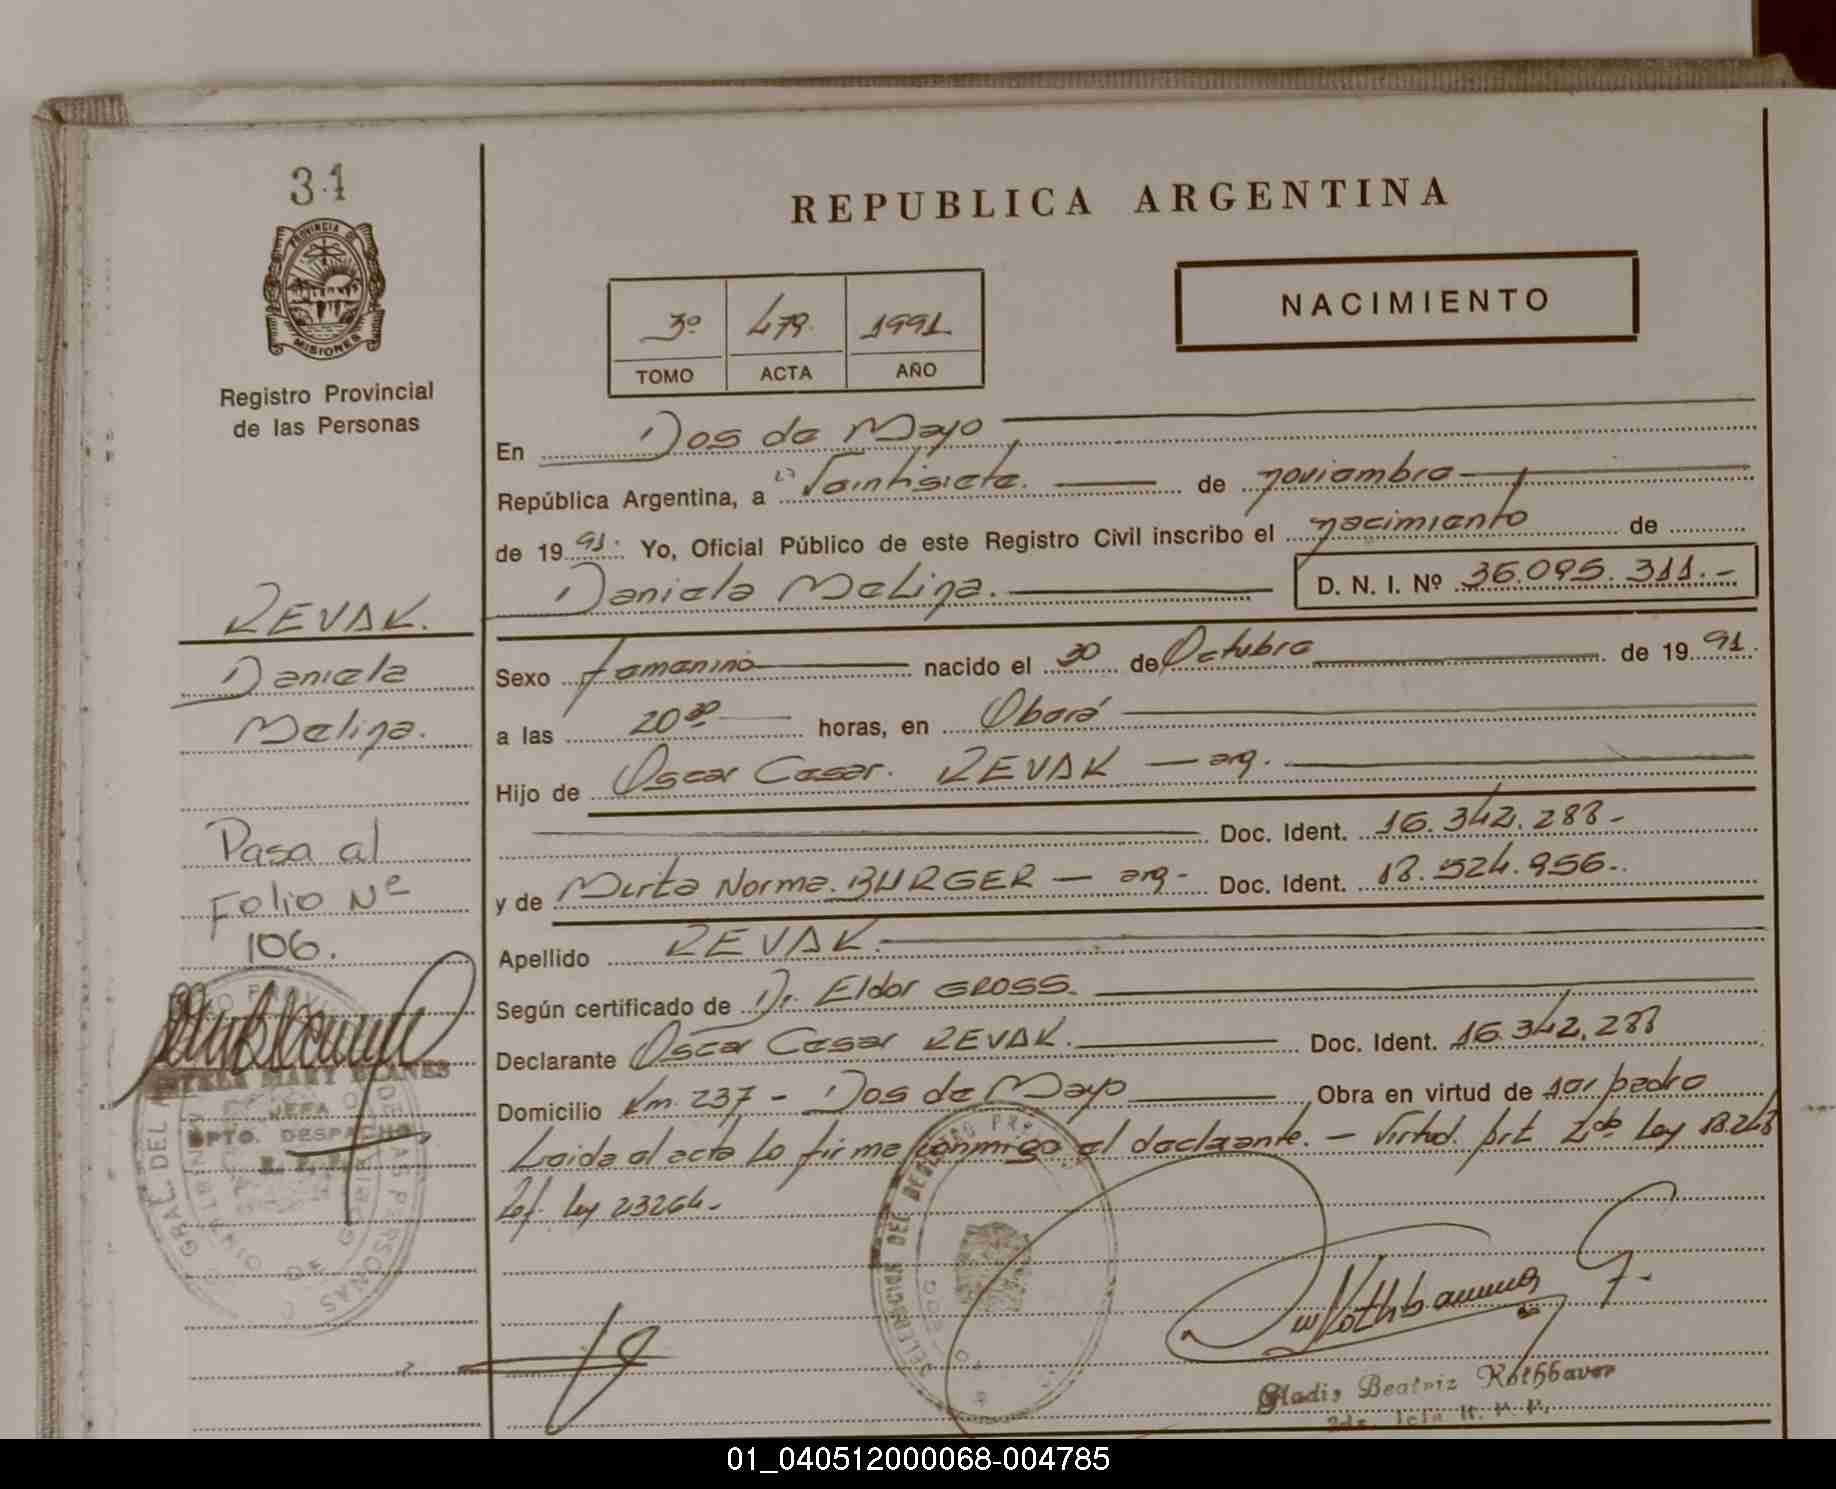 31
PROVINCIA DE
MISIONES
Registro Provincial
de las Personas
REPUBLICA ARGENTINA
NACIMIENTO
3º 479. 1991
TOMO ACTA AÑO
En Dos de Mayo
República Argentina, a Veintisiete. de noviembre
de 19 91. Yo, Oficial Público de este Registro Civil inscribo el nacimiento de
Daniela Melina. D. N. I. Nº 36.095.311.-
REVAK.
Daniela
Melina.
Sexo femenino nacido el 30 de Octubre de 19 91
a las 20 30 horas, en Oberá
Hijo de Oscar Cesar. REVAK — arg.
Doc. Ident. 16.342.288-
y de Mirta Norma BURGER — arg- Doc. Ident. 18.524.956-
Pasa al
Folio Nº
106.
Apellido REVAK.
Según certificado de Dr. Eldor GROSS.
Declarante Oscar Cesar REVAK. Doc. Ident. 16.342.288
Domicilio Km. 237 - Dos de Mayo Obra en virtud de ser padre
Leida el acta lo firma conmigo el declarante. — Virtud. Art 2do Ley 18.248
Ley 23264-
MARY
JEFA
DPTO. DESPACHO
Rothbauer
Gladis Beatriz Rothbaver
01_040512000068-004785